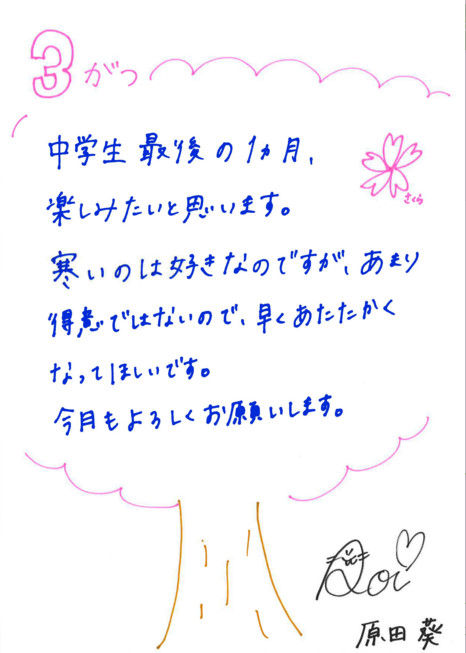 3がつ
さくら
中学生最後の1ヵ月、
楽しみたいと思います。
寒いのは好きなのですが、あまり
得意ではないので、早くあたたかく
なってほしいです。
今月もよろしくお願いします。
Aoi
原田葵